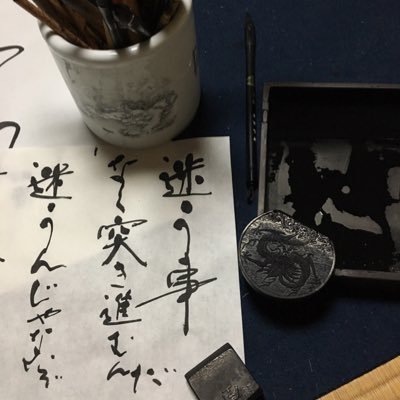 迷う事
なく突き進むんだ
迷うんじゃないぞ